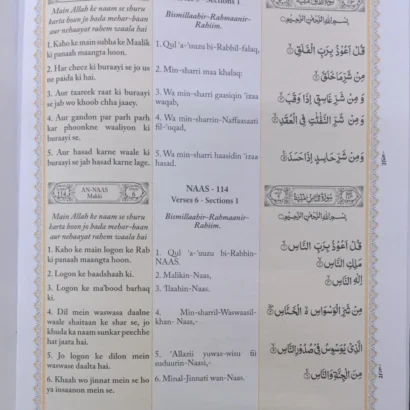 Verses 5 - Sections 1
Main Allah ke naam se shuru
karta hoon jo bada mehar-baan
aur nehaayat rahem waala hai
1. Kaho ke main subha ke Maalik
ki panaah maangta hoon.
2. Har cheez ki buraayi se jo us
ne paida ki hai.
3. Aur taareek raat ki buraayi
se jab wo khoob chha jaaey.
4. Aur gandon par parh parh
kar phoonkne waaliyon ki
buraayi se.
5. Aur hasad karne waale ki
buraayi se jab hasad karne lage.
Bismillaahir-Rahmaanir-
Rahiim.
1. Qul 'a-'uuzu bi-Rabbil-falaq,
2. Min-sharri maa khalaq;
3. Wa min-sharri gaasiqin 'izaa
waqab,
4. Wa min-sharrin-Naffaasaati
fil-'uqad,
5. Wa min-sharri haasidin 'izaa
hasad.
بِسْمِ اللهِ الرَّحْمٰنِ الرَّحِيْمِ
قُلْ اَعُوْذُ بِرَبِّ الْفَلَقِ
مِنْ شَرِّ مَا خَلَقَ
وَ مِنْ شَرِّ غَاسِقٍ اِذَا وَقَبَ
وَ مِنْ شَرِّ النَّفّٰثٰتِ فِي الْعُقَدِ
وَ مِنْ شَرِّ حَاسِدٍ اِذَا حَسَدَ
AN-NAAS
Makki
NAAS - 114
Verses 6 - Sections 1
Main Allah ke naam se shuru
karta hoon jo bada mehar-baan
aur nehaayat rahem waala hai
1. Kaho ke main logon ke Rab
ki panaah maangta hoon.
2. Logon ke baadshaah ki.
3. Logon ke ma'bood barhaq
ki.
4. Dil mein waswasa daalne
waale shaitaan ke shar se, jo
khuda ka naam sunkar peechhe
hat jaata hai.
5. Jo logon ke dilon mein
waswase daalta hai.
6. Khaah wo jinnat mein se ho
ya insaanon mein se.
Bismillaahir-Rahmaanir-
Rahiim.
1. Qul 'a-'uuzu bi-Rabbin-
NAAS.
2. Malikin-Naas,
3. 'Ilaahin-Naas.
4. Min-sharril-Waswaasil-
khan- Naas,-
5. 'Allazii yuwas-wisu fii
suduurin-Naasi,-
6. Minal-Jinnati wan-Naas.
بِسْمِ اللهِ الرَّحْمٰنِ الرَّحِيْمِ
قُلْ اَعُوْذُ بِرَبِّ النَّاسِ
مَلِكِ النَّاسِ
اِلٰهِ النَّاسِ
مِنْ شَرِّ الْوَسْوَاسِ الْخَنَّاسِ
الَّذِيْ يُوَسْوِسُ فِيْ صُدُوْرِ النَّاسِ
مِنَ الْجِنَّةِ وَ النَّاسِ